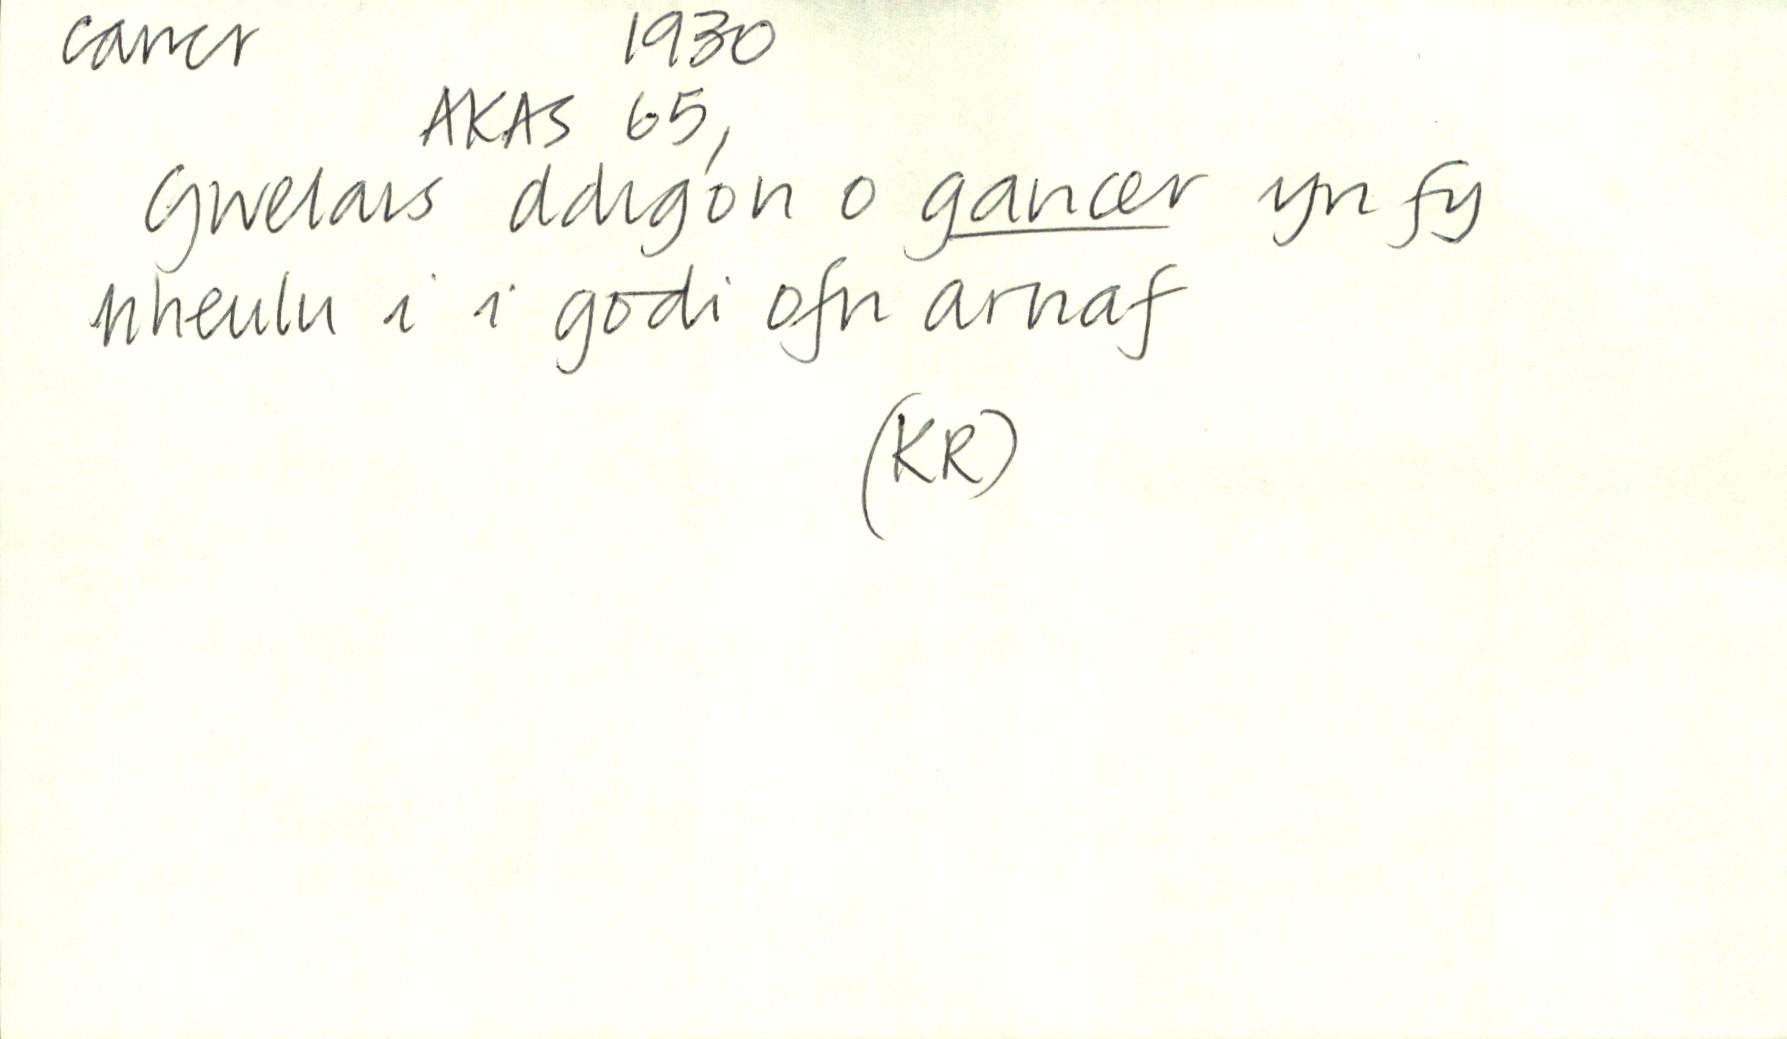 cancr 1930
AKAS 65,
Gwelais ddigon o gancer yn fy
nheulu i i godi ofn arnaf
(KR)